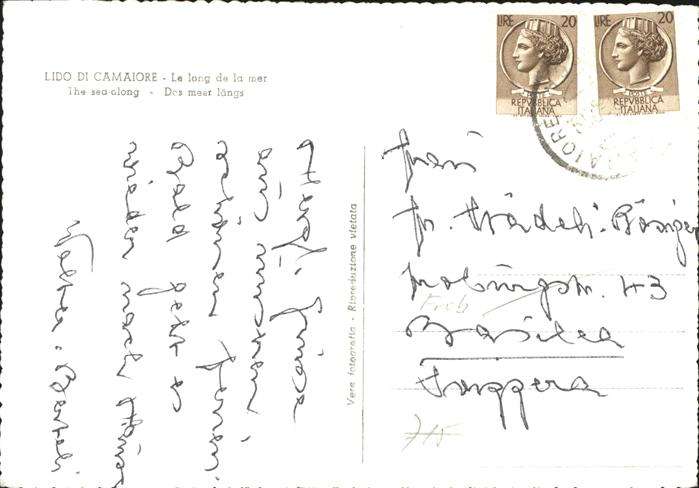 LIDO DI CAMAIORE - Le long de la mer
The sea-along - Das meer längs
LIRE 20
POSTE
REPVBBLICA
ITALIANA
LIRE 20
POSTE
REPVBBLICA
ITALIANA
Herzl. Grüsse
aus unseren
schönen Ferien.
Bald geht es
wieder nach Hause
Vera fotografia - Riproduzione vietata
Frau
Fr.
43
Frob
Basilea
Svizzera
715